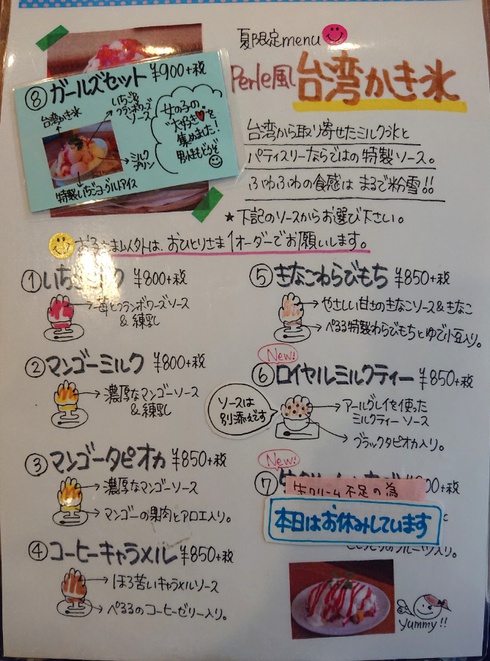 夏限定menu
Perle風 台湾かき氷
⑧ガールズセット ¥900+税
台湾かき氷
いちご&フランボワーズソース
ミルクプリン
特製いちごヨーグルアイス
女の子の
"大好き♥を
集めました!
男性もどうぞ
台湾から取り寄せたミルク氷と
パティスリーならではの特製ソース。
ふわふわの食感は まるで粉雪!!
★下記のソースからお選び下さい。
おひとりさま1オーダーでお願いします。
¥800+税
苺とフランボワーズソース
&練乳
②マンゴーミルク ¥800+税
濃厚なマンゴーソース
&練乳
③マンゴータピオカ ¥850+税
濃厚なマンゴーソース
マンゴーの果肉とアロエ入り。
④コーヒーキャラメル ¥850+税
ほろ苦いキャラメルソース
ぺるるのコーヒーゼリー入り。
⑤きなこわらびもち ¥850+税
やさしい甘さのきなこソース&きなこ
ぺるる特製わらびもちとゆで小豆入り。
New!
⑥ロイヤルミルクティー ¥850+税
ソースは
別添えです
アールグレイを使った
ミルクティーソース
ブラックタピオカ入り。
New!
⑦
生クリーム不足の為
本日はお休みしています
yummy!!